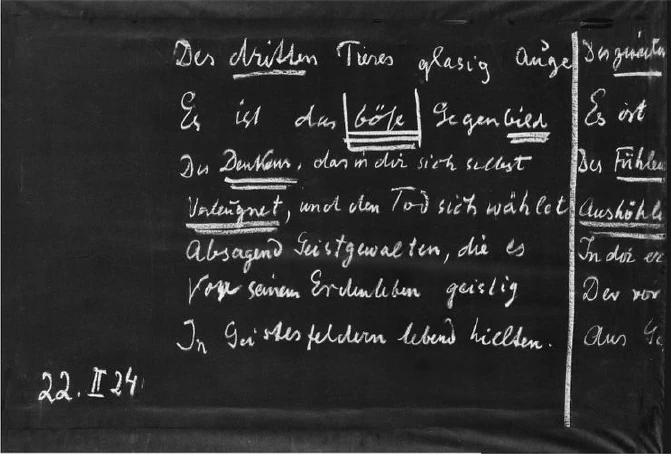 Des dritten Tieres glasig Auge
Es ist das böse Gegenbild
Des Denkens, das in dir sich selbst
Verleugnet, und den Tod sich wählet
Absagend Geistgewalten, die es
Vor seinem Erdenleben geistig
In Geistesfeldern lebend hielten.
22. II 24.
Des zweiten
Es ist
Des Fühlens
Aushöhl
In dir
Der vor
Aus